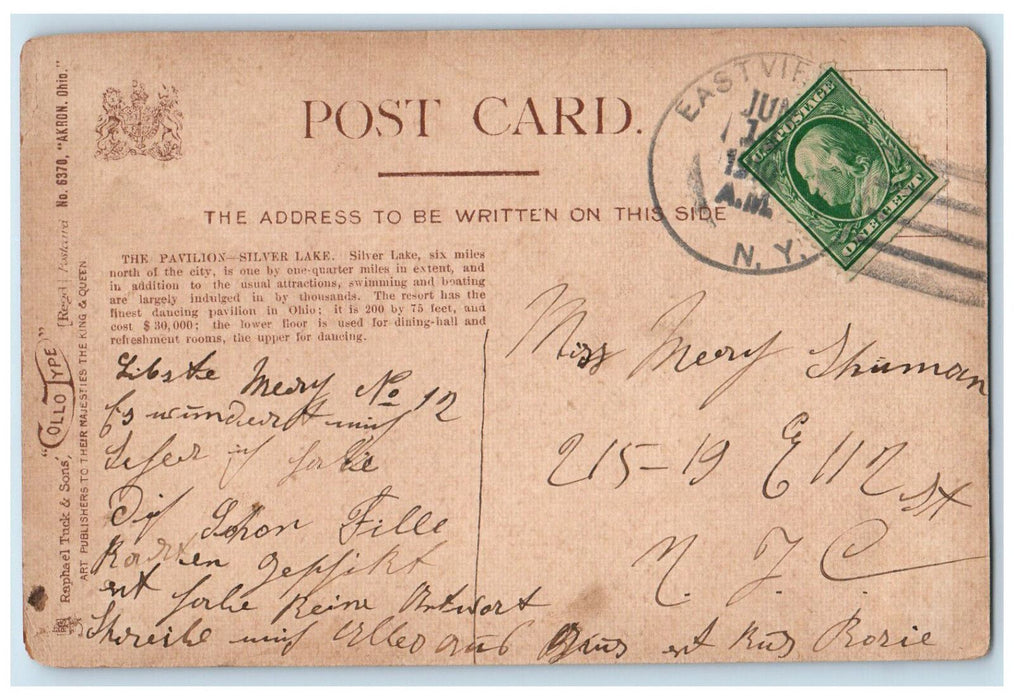 POST CARD.
THE ADDRESS TO BE WRITTEN ON THIS SIDE
EASTVIEW
JUN
A.M.
N.Y.
U.S. POSTAGE
ONE CENT
THE PAVILION—SILVER LAKE. Silver Lake, six miles
north of the city, is one by one-quarter miles in extent, and
in addition to the usual attractions, swimming and boating
are largely indulged in by thousands. The resort has the
finest dancing pavilion in Ohio; it is 200 by 75 feet, and
cost $30,000; the lower floor is used for dining-hall and
refreshment rooms, the upper for dancing.
Raphael Tuck & Sons' "COLLOTYPE" [Regd.] Postcard No. 6370, "AKRON, Ohio."
ART PUBLISHERS TO THEIR MAJESTIES THE KING & QUEEN
Libste Mery No 12
Es wundert mich
ich habe
Dich Schon Fille
Karten
habe Keine Antwort
mich Alles aus Grus Kus Rosie
Miss Mery Shuman
215-19 E 112 St
N. Y. C.